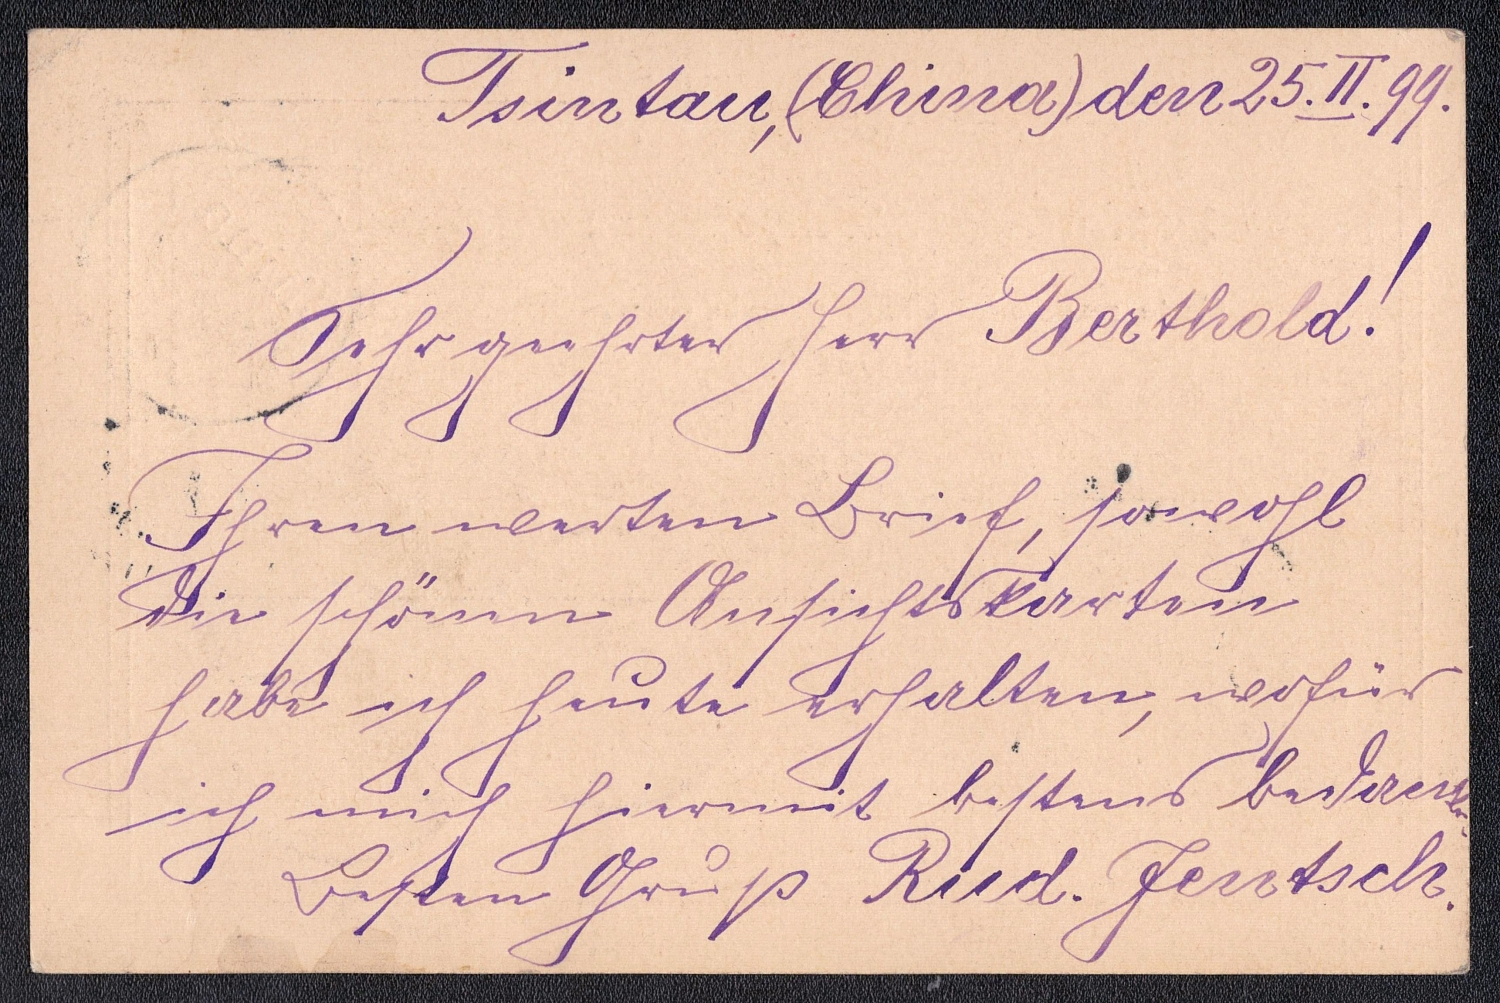 Tsintau, (China) den 25. II. 99.
Sehr geehrter Herr Berthold!
Ihren werten Brief, sowohl
die schönen Ansichtskarten
habe ich heute erhalten, wofür
ich mich hiermit bestens bedanke.
Besten Gruß Rud. Jentsch.